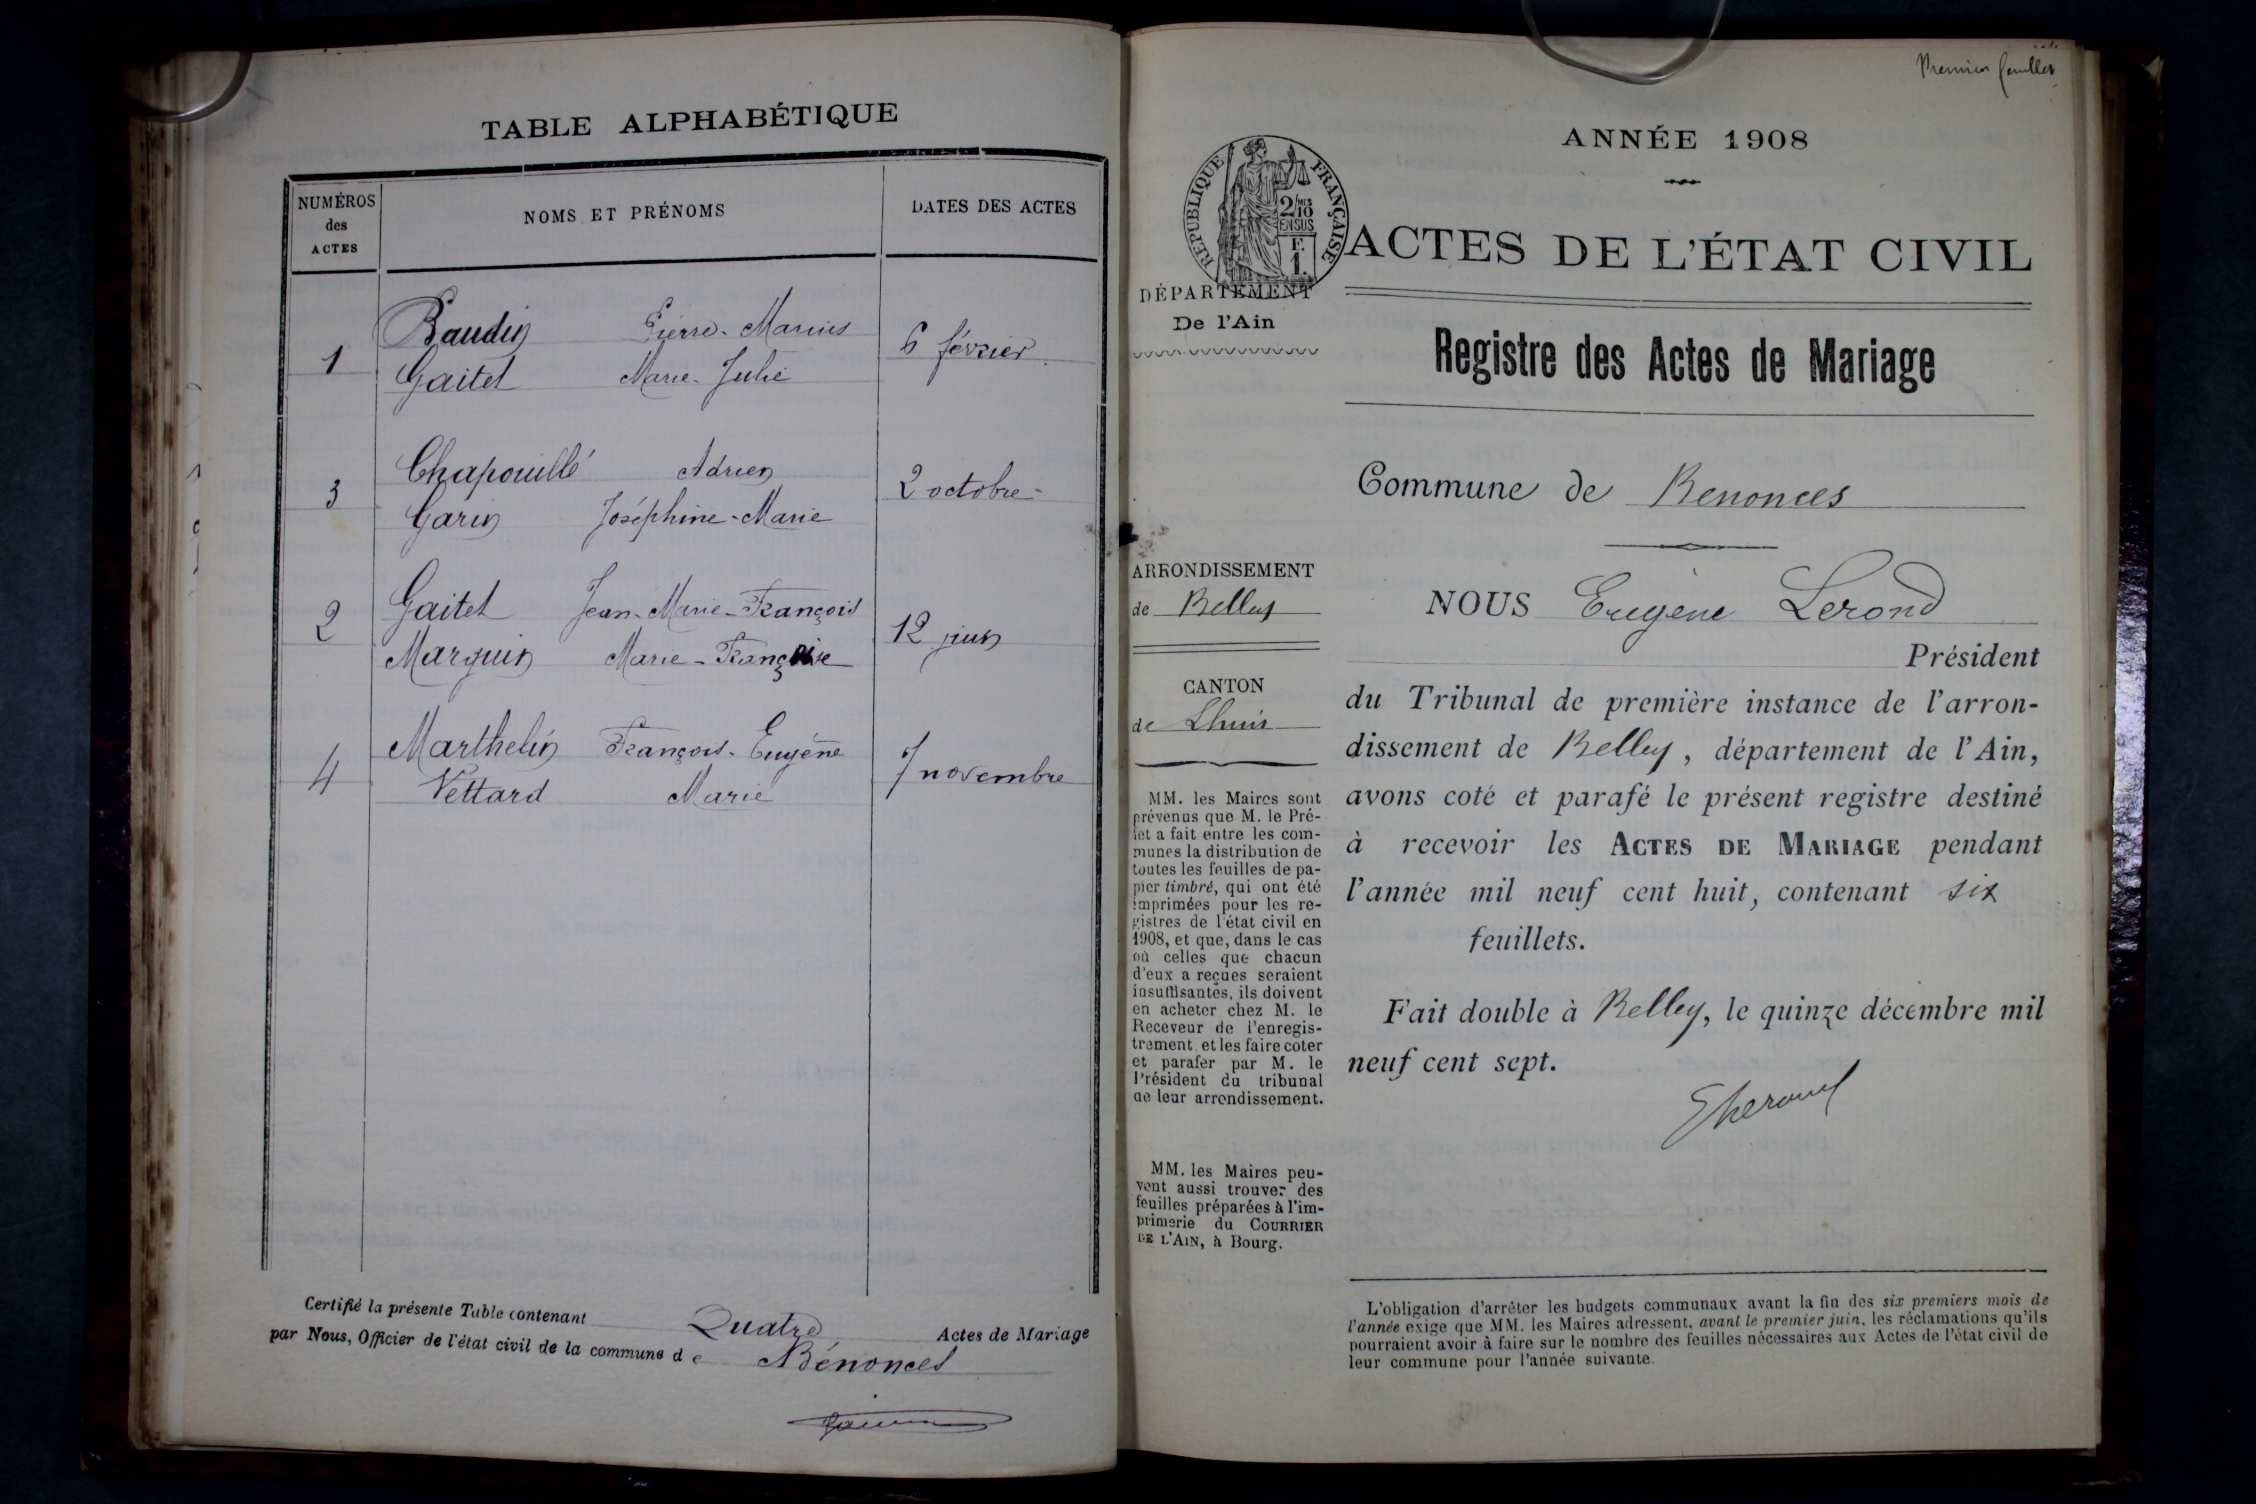 TABLE ALPHABÉTIQUE
NUMÉROS
des
ACTES
NOMS ET PRÉNOMS
DATES DES ACTES
1
Baudin Pierre-Marius
Gaitet Marie-Julie
6 février
3
Chapouillé Adrien
Garin Joséphine-Marie
2 octobre
2
Gaitet Jean-Marie-François
Marquin Marie-Françoise
12 juin
4
Marthelin François-Eugène
Vettard Marie
7 novembre
Certifié la présente Table contenant Quatre Actes de Mariage
par Nous, Officier de l'état civil de la commune de Bénonces
Premier feuillet
ANNÉE 1908
RÉPUBLIQUE FRANÇAISE
2/10
EN SUS
F.
1.
ACTES DE L'ÉTAT CIVIL
DÉPARTEMENT
De l'Ain
Registre des Actes de Mariage
Commune de Benonces
ARRONDISSEMENT
de Belley
CANTON
de Lhuis
MM. les Maires sont
prévenus que M. le Pré-
fet a fait entre les com-
munes la distribution de
toutes les feuilles de pa-
pier timbré, qui ont été
imprimées pour les re-
gistres de l'état civil en
1908, et que, dans le cas
où celles que chacun
d'eux a reçues seraient
insuffisantes, ils doivent
en acheter chez M. le
Receveur de l'enregis-
trement et les faire coter
et parafer par M. le
Président du tribunal
de leur arrondissement.
MM. les Maires peu-
vent aussi trouver des
feuilles préparées à l'im-
primerie du COURRIER
DE L'AIN, à Bourg.
NOUS Eugène Lerond
Président
du Tribunal de première instance de l'arron-
dissement de Belley, département de l'Ain,
avons coté et parafé le présent registre destiné
à recevoir les ACTES DE MARIAGE pendant
l'année mil neuf cent huit, contenant six
feuillets.
Fait double à Belley, le quinze décembre mil
neuf cent sept.
L'obligation d'arrêter les budgets communaux avant la fin des six premiers mois de
l'année exige que MM. les Maires adressent, avant le premier juin, les réclamations qu'ils
pourraient avoir à faire sur le nombre des feuilles nécessaires aux Actes de l'état civil de
leur commune pour l'année suivante.